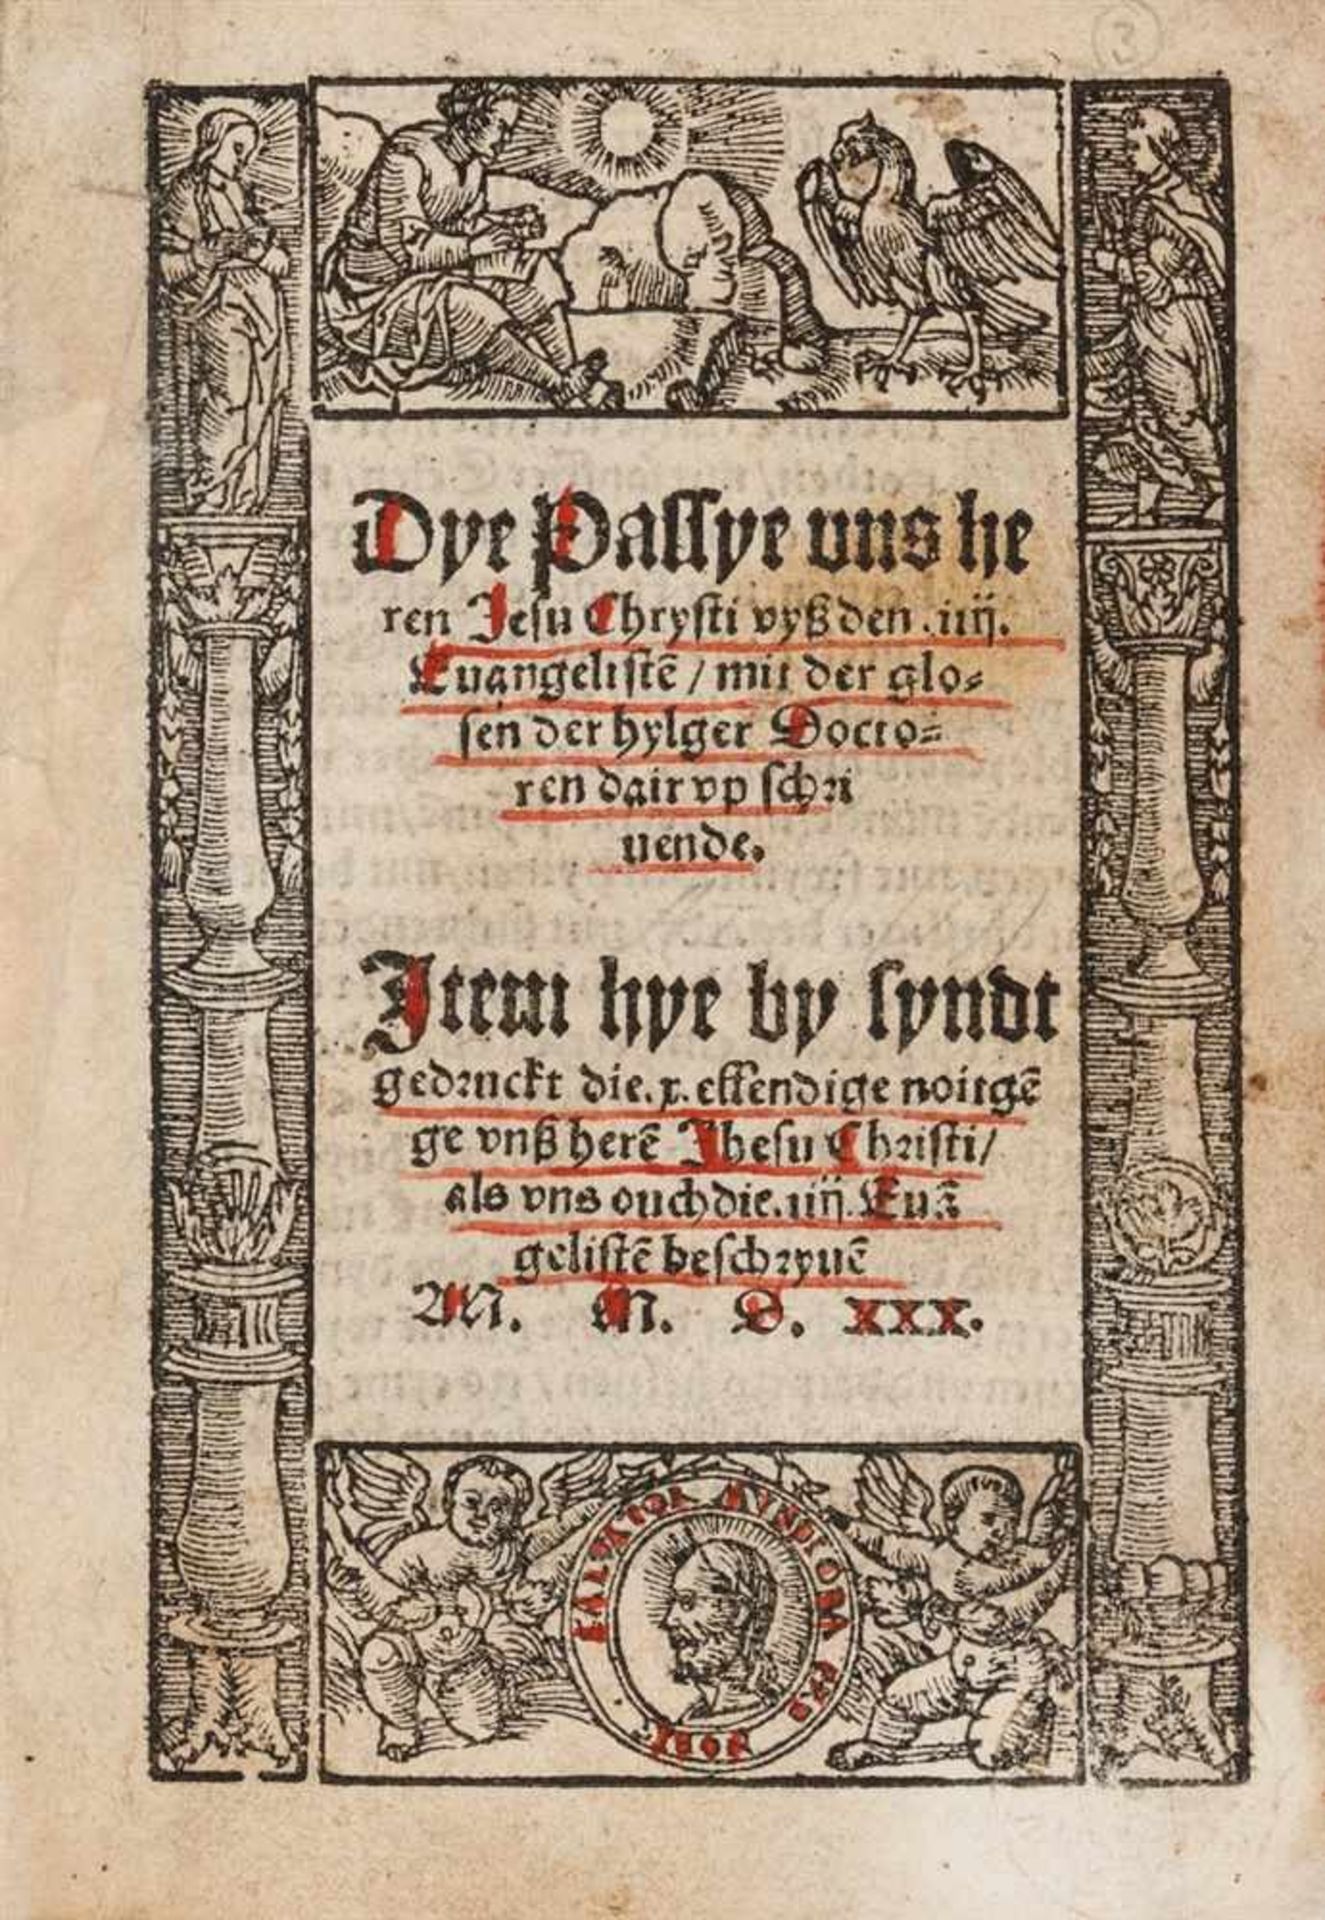 3
Dye Passye vns he
ren Jesu Chrysti vyß den .iiij.
Euangelistē / mit der glo⸗
sen der hylger Docto⸗
ren dair vp schri
uende.
Item hye by syndt
gedruckt die .x. ellendige noitgē
ge vnß herē Jhesu Christi /
als vns ouch die .iiij. Euā
gelistē beschryuē
M. D. XXX.
SALVATOR MVNDI